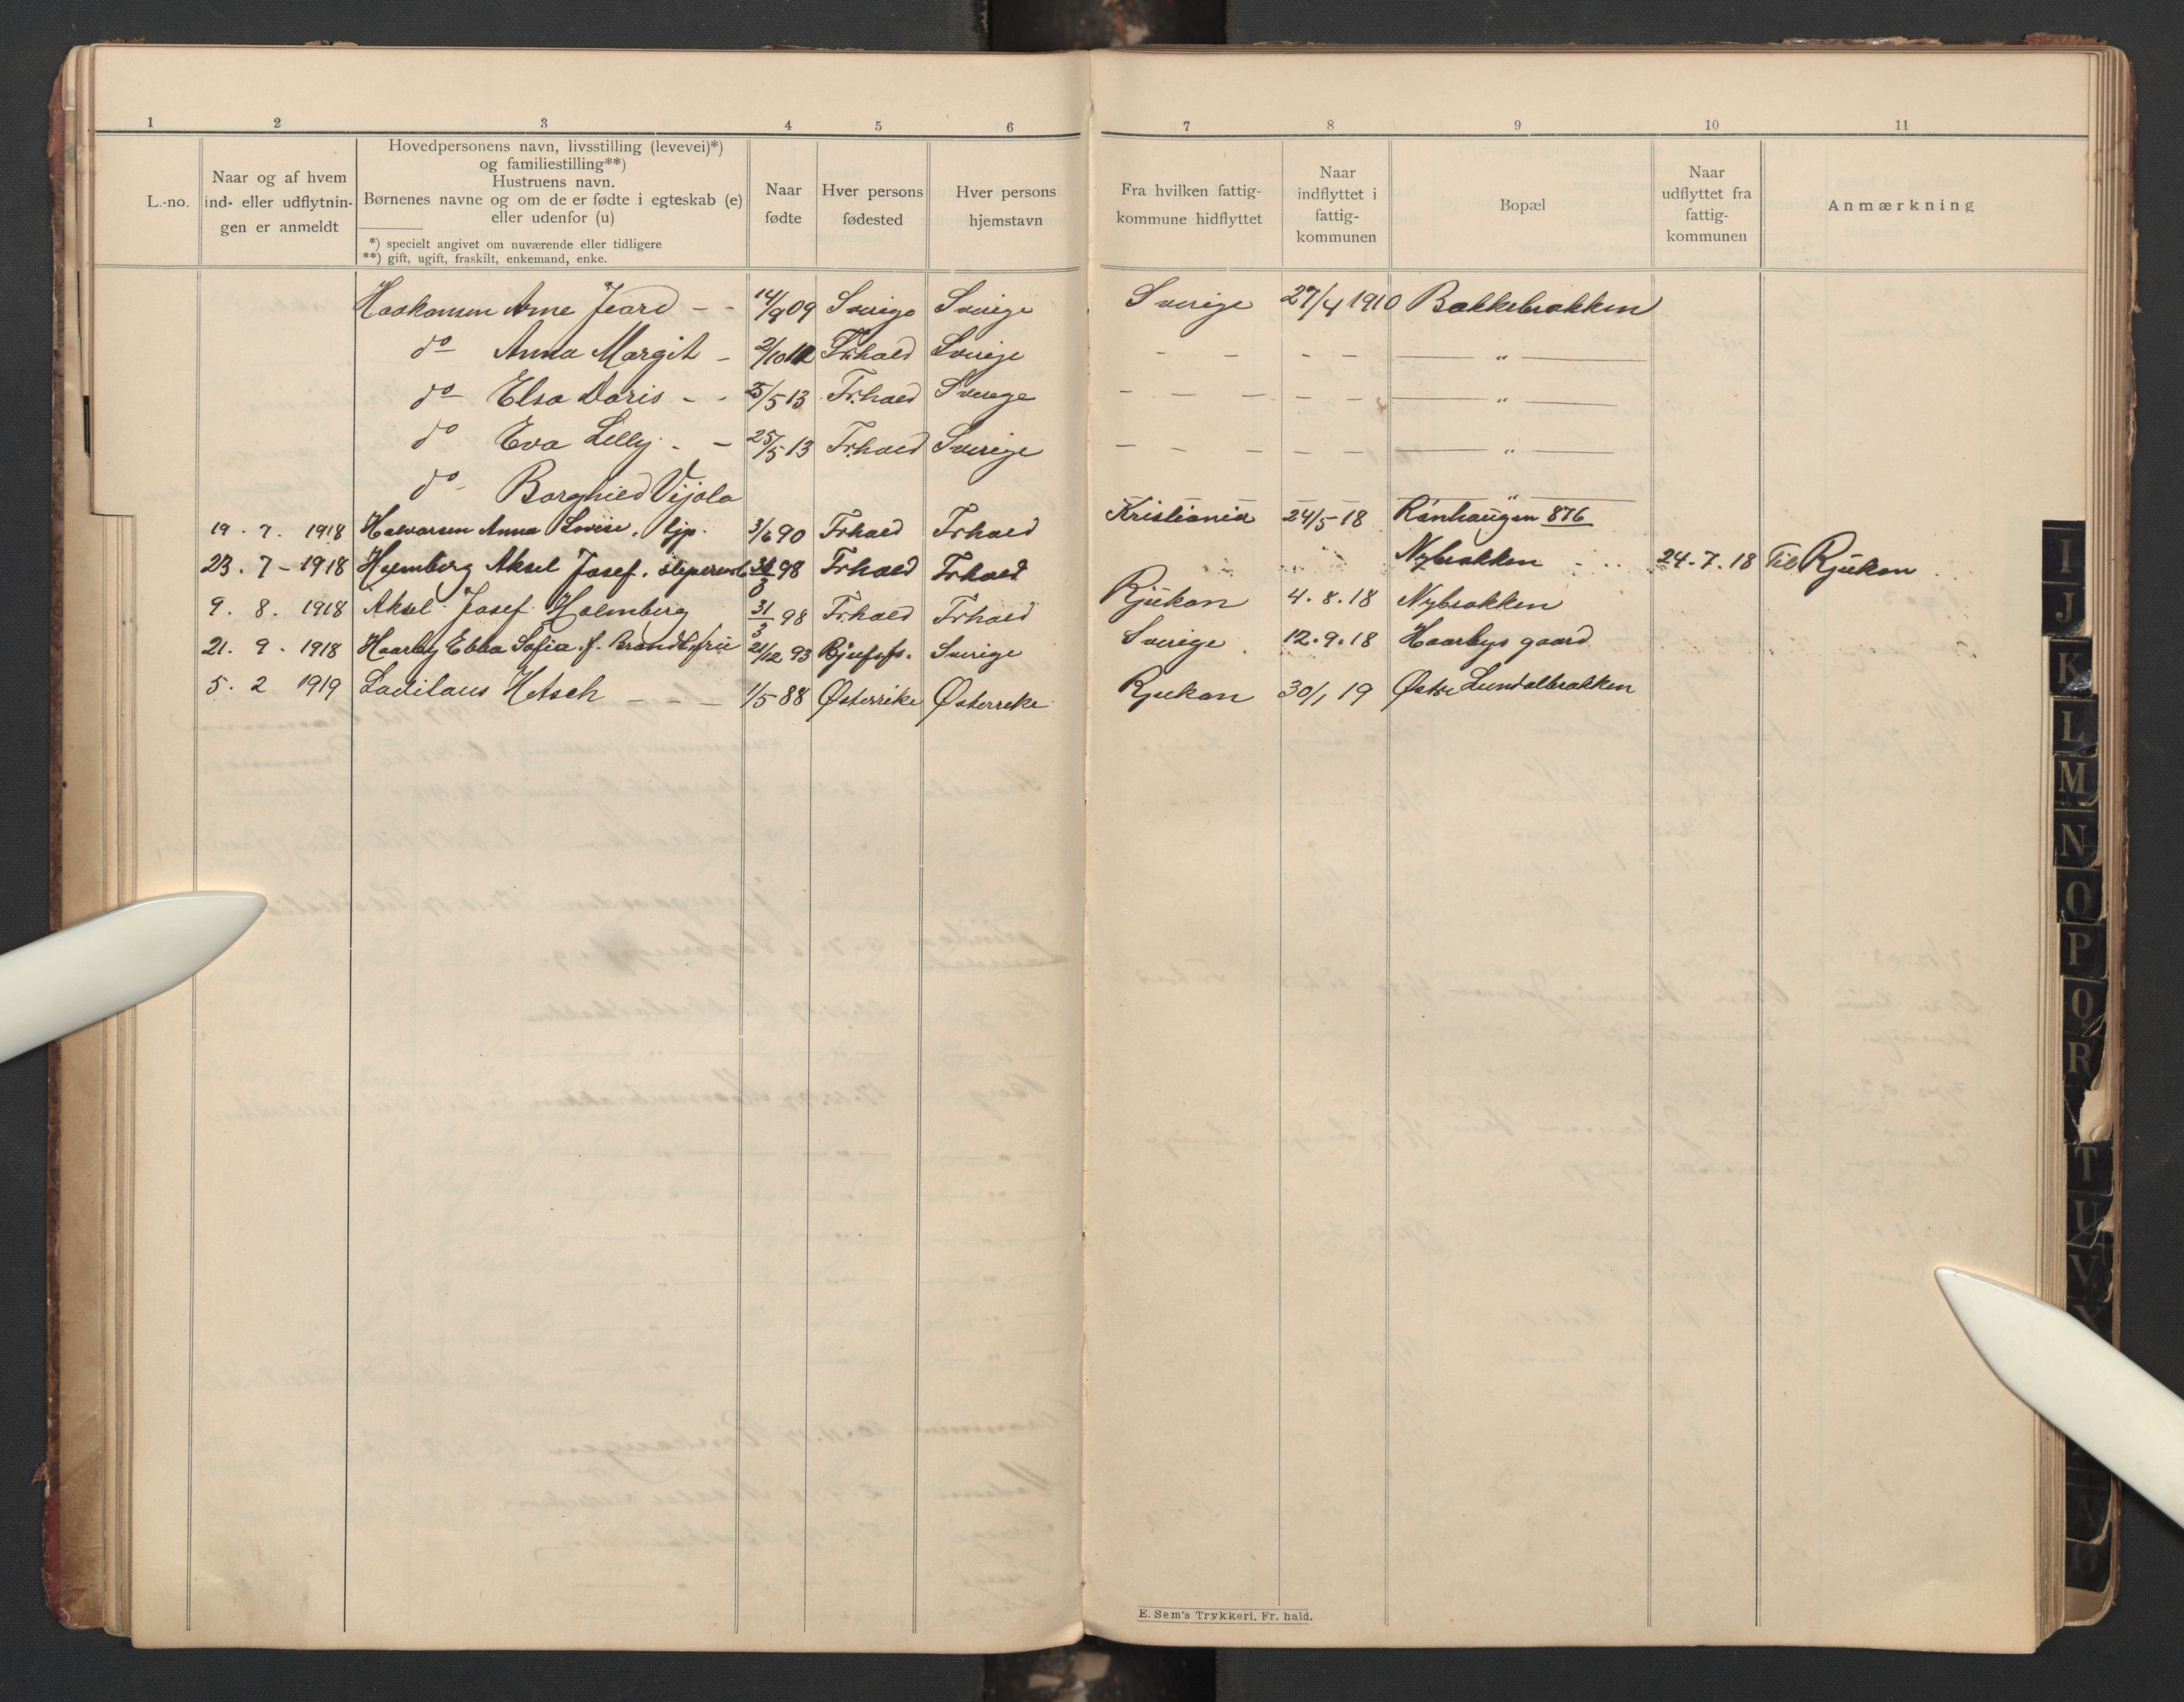 1 2 3 4 5 6 7 8 9 10 11
L.-no.
Naar og af hvem
ind- eller udflytnin-
gen er anmeldt
Hovedpersonens navn, livsstilling (levevei)*)
og familiestilling**)
Hustruens navn.
Børnenes navne og om de er fødte i egteskab (e)
eller udenfor (u)
*) specielt angivet om nuværende eller tidligere
**) gift, ugift, fraskilt, enkemand, enke.
Naar
fødte
Hver persons
fødested
Hver persons
hjemstavn
Fra hvilken fattig-
kommune hidflyttet
Naar
indflyttet i
fattig-
kommunen
Bopæl
Naar
udflyttet fra
fattig-
kommunen
Anmærkning
Haakonsen Arne - - 14/9 09 Sverige Sverige Sverige 27/4 1910 Bakkebrakken
do Anna Margit - 2/10 Fr.hald Sverige - - - "
do Elsa Doris - - 25/5 13 Fr.hald Sverige - - - - - "
do Eva Lilly - - 25/5 13 Fr.hald Sverige - - - - - "
do Borghild Vijola - - - "
19. 7. 1918 Halvorsen Anna Lovise. tjp. 3/6 90 Frhald Frhald Kristiania 24/5 - 18 Rønhaugen 876
23. 7 - 1918 Holmberg Aksel Josef. 31/3 98 Frhald Frhald Nybrakken 24. 7. 18 Til Rjukan
9. 8. 1918 Aksel Josef Holmberg 31/3 98 Fr.hald Frhald Rjukan 4. 8. 18 Nybrakken
21. 9. 1918 Haarby Ebba Sofia. f. Brandt, frue 21/12 93 Sverige Sverige 12. 9. 18 Haarbys gaard
5. 2 1919 Ladilaus Hetsch - - - 1/5 88 Østerrike Østerrike Rjukan 30/1 19 Østre Lundalbrakken
I
J
K
L
M
N
O
P
Q
R
T
U
V
X
Ø
E. Sem's Trykkeri, Fr. hald.